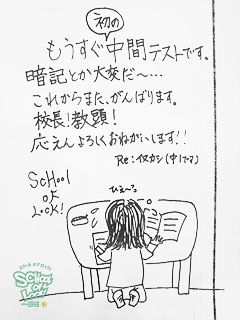 初の
もうすぐ中間テストです。
暗記とか大変だ〜・・・
これからまた、がんばります。
校長!教頭!
応えんよろしくおねがいします!!
Re:イヌカシ(中1です)
SCHOOL
OF
LOCK!
ひぇ〜っ
SCHOOL
OF
LOCK!